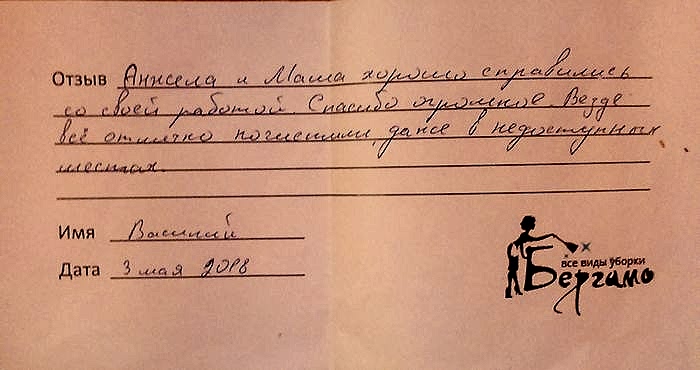 Отзыв Анжела и Маша хорошо справились
со своей работой. Спасибо огромное. Везде
всё отлично почистили, даже в недоступных
местах.
Имя Василий
Дата 3 мая 2018
все виды уборки
Бергамо